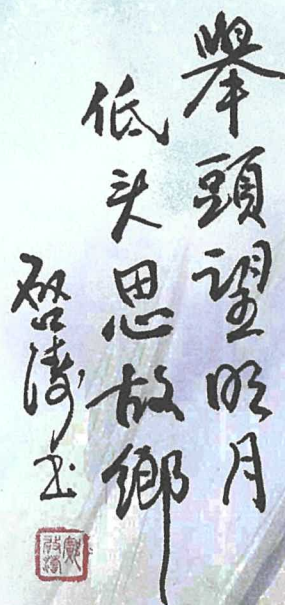 舉頭望明月
低头思故鄉
啟濤书